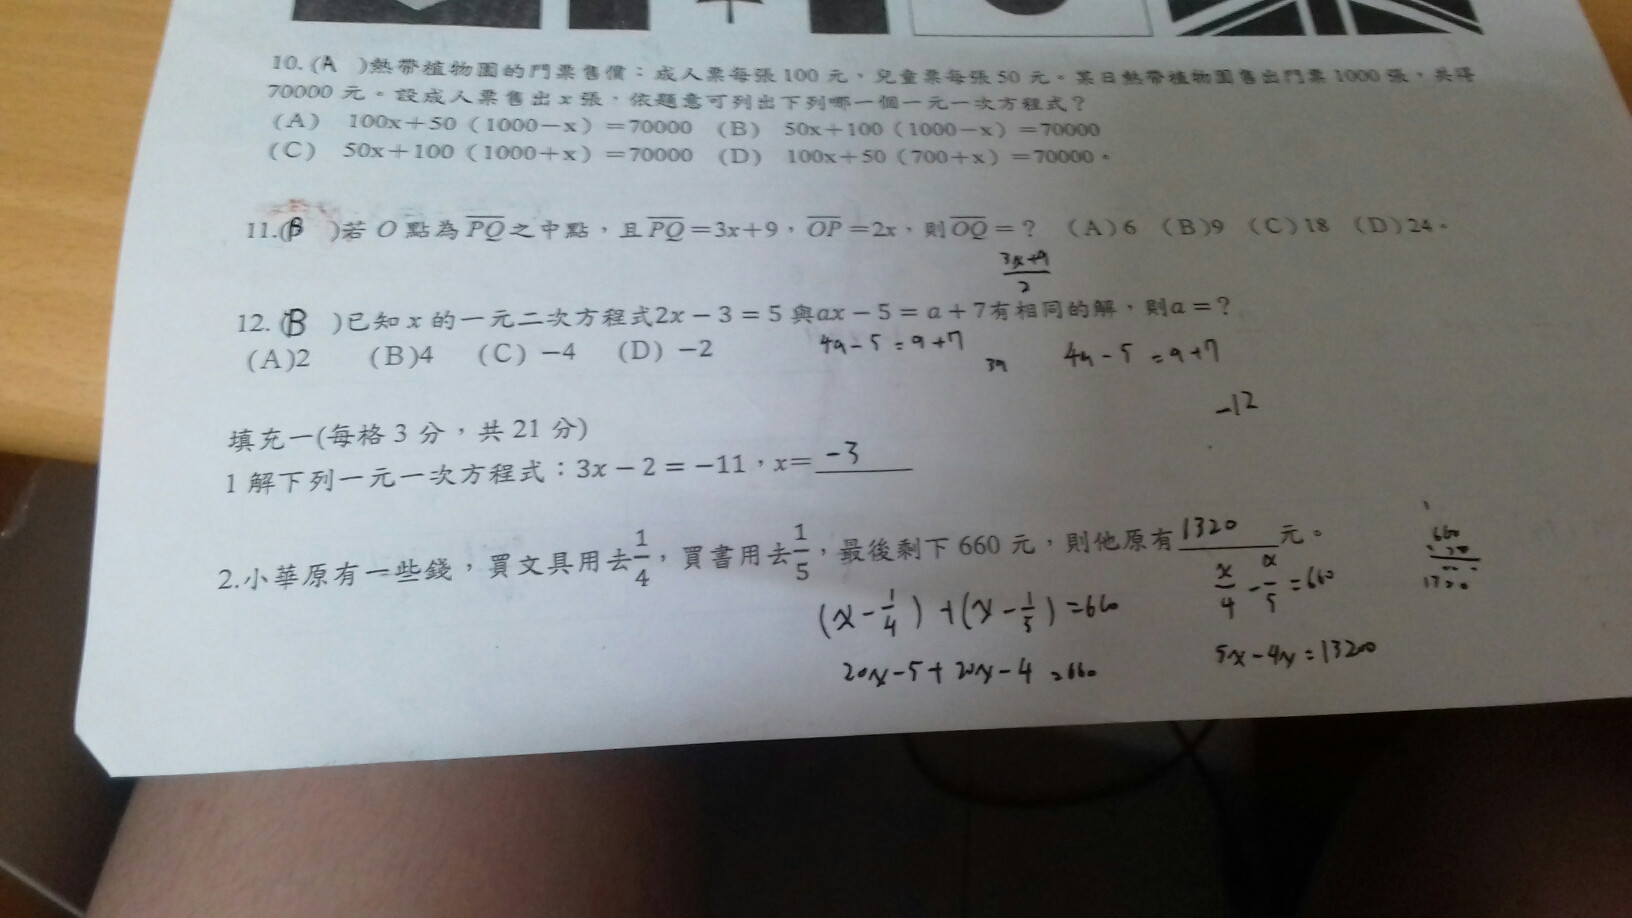 10.(A )熱帶植物園的門票售價：成人票每張100元，兒童票每張50元。某日熱帶植物園售出門票1000張，共得
70000元。設成人票售出x張，依題意可列出下列哪一個一元一次方程式？
(A) 100x＋50（1000－x）＝70000 (B) 50x＋100（1000－x）＝70000
(C) 50x＋100（1000＋x）＝70000 (D) 100x＋50（700＋x）＝70000。
11.(B )若O點為PQ之中點，且PQ＝3x+9，OP＝2x，則OQ＝？ (A)6 (B)9 (C)18 (D)24。
3x+9
2
12.(B )已知x的一元二次方程式2x－3＝5與ax－5＝a＋7有相同的解，則a＝？
(A)2 (B)4 (C)－4 (D)－2
4a-5=a+7
3a
4a-5=a+7
-12
填充一(每格3分，共21分)
1解下列一元一次方程式：3x－2＝－11，x＝-3
2.小華原有一些錢，買文具用去1/4，買書用去1/5，最後剩下660元，則他原有1320元。
(x-1/4)+(x-1/5)=660
x/4-x/5=660
660
1320
20x-5+20x-4=660
5x-4x=13200